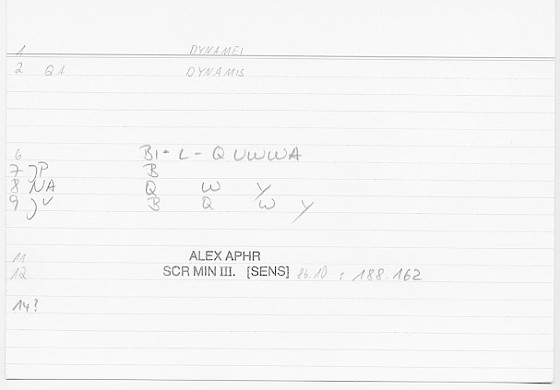 1 DYNAMEI
2 QA DYNAMIS
6 B1 - L - Q U W W A
7 JP B
8 NA Q W Y
9 JV B Q W Y
11 ALEX APHR
12 SCR MIN III. [SENS] 86.10 : 188.162
14?